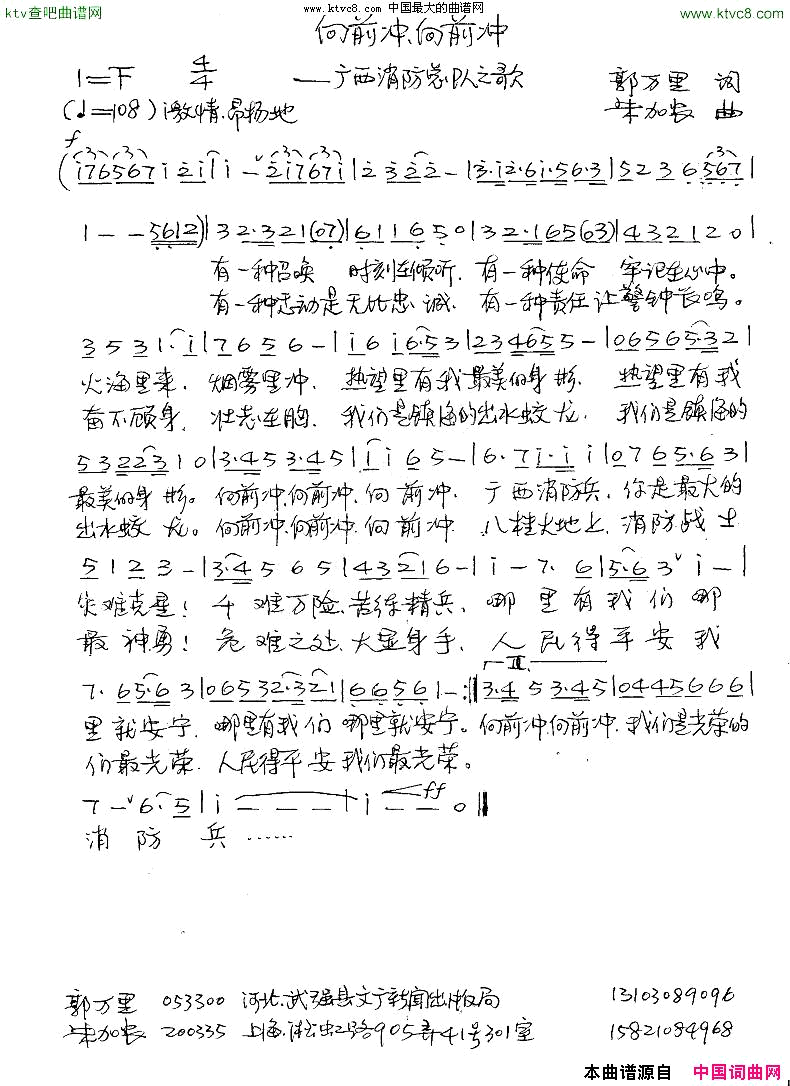 www.ktvc8.com 中国最大的曲谱网
ktv查吧曲谱网
www.ktvc8.com
向前冲、向前冲
1=F 4/4 ——广西消防总队之歌 郭万里 词
(♩=108) 激情.昂扬地 朱加农 曲
f
(i76567i 2i|i - ˅2i767i|2 322 -|3·i2·6i·56·3|5236567|
1 - - 5612)|32·321(07)|611650|32·165(63)|432120|
有一种召唤 时刻在倾听. 有一种使命 牢记在心中。
有一种志动是无比忠诚. 有一种责任让警钟长鸣。
3531·i|7656-|i6i6·53|234655-|06565·32|
火海里来. 烟雾里冲. 热望里有我最美的身影. 热望里有我
奋不顾身. 壮志在胸. 我们是镇海的出水蛟龙. 我们是镇海的
5322310|3·453·45|ii65-|6·7i·ii|0765·63|
最美的身影。向前冲.向前冲.向前冲. 广西消防兵.你是最大的
出水蛟龙。向前冲.向前冲.向前冲 八桂大地上.消防战士
5123-|3·4565|43216-|i-7·6|5·63˅i-|
灾难克星！千难万险.苦练精兵. 哪里有我们哪
最神勇！危难之处.大显身手. 人民得平安我
II.
7·65·63|06532·321|66561-:‖3·453·45|04456666|
里就安宁. 哪里有我们哪里就安宁。向前冲.向前冲.我们是光荣的
们最光荣. 人民得平安我们最光荣。
ff
7-˅6·5|i - - -|i - - 0‖
消防兵……
郭万里 053300 河北.武强县文广新闻出版局 13103089096
朱加农 200335 上海.淞虹路905弄41号301室 15821084968
本曲谱源自 中国词曲网